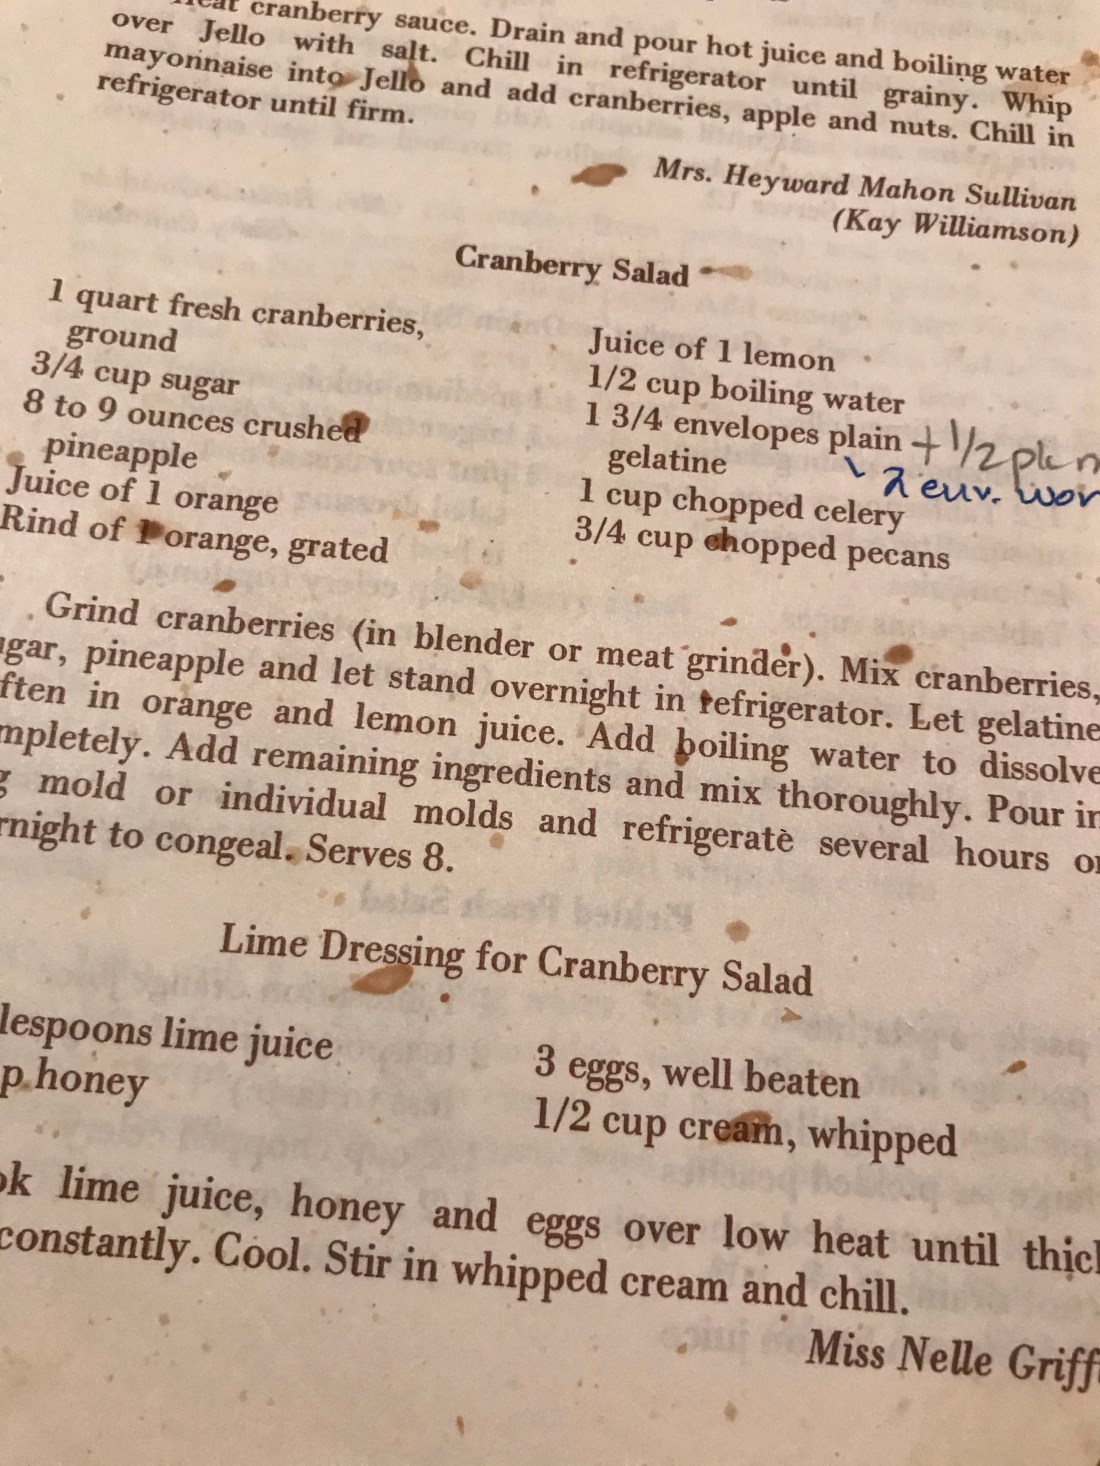 cranberry sauce. Drain and pour hot juice and boiling water
over Jello with salt. Chill in refrigerator until grainy. Whip
mayonnaise into Jello and add cranberries, apple and nuts. Chill in
refrigerator until firm.
Mrs. Heyward Mahon Sullivan
(Kay Williamson)
Cranberry Salad
1 quart fresh cranberries,
ground
3/4 cup sugar
8 to 9 ounces crushed
pineapple
Juice of 1 orange
Rind of 1 orange, grated
Juice of 1 lemon
1/2 cup boiling water
1 3/4 envelopes plain + 1/2
gelatine 2 env.
1 cup chopped celery
3/4 cup chopped pecans
Grind cranberries (in blender or meat grinder). Mix cranberries,
gar, pineapple and let stand overnight in refrigerator. Let gelatine
ften in orange and lemon juice. Add boiling water to dissolve
mpletely. Add remaining ingredients and mix thoroughly. Pour in
g mold or individual molds and refrigerate several hours or
rnight to congeal. Serves 8.
Lime Dressing for Cranberry Salad
lespoons lime juice
p honey
3 eggs, well beaten
1/2 cup cream, whipped
ok lime juice, honey and eggs over low heat until thick
constantly. Cool. Stir in whipped cream and chill.
Miss Nelle Griff